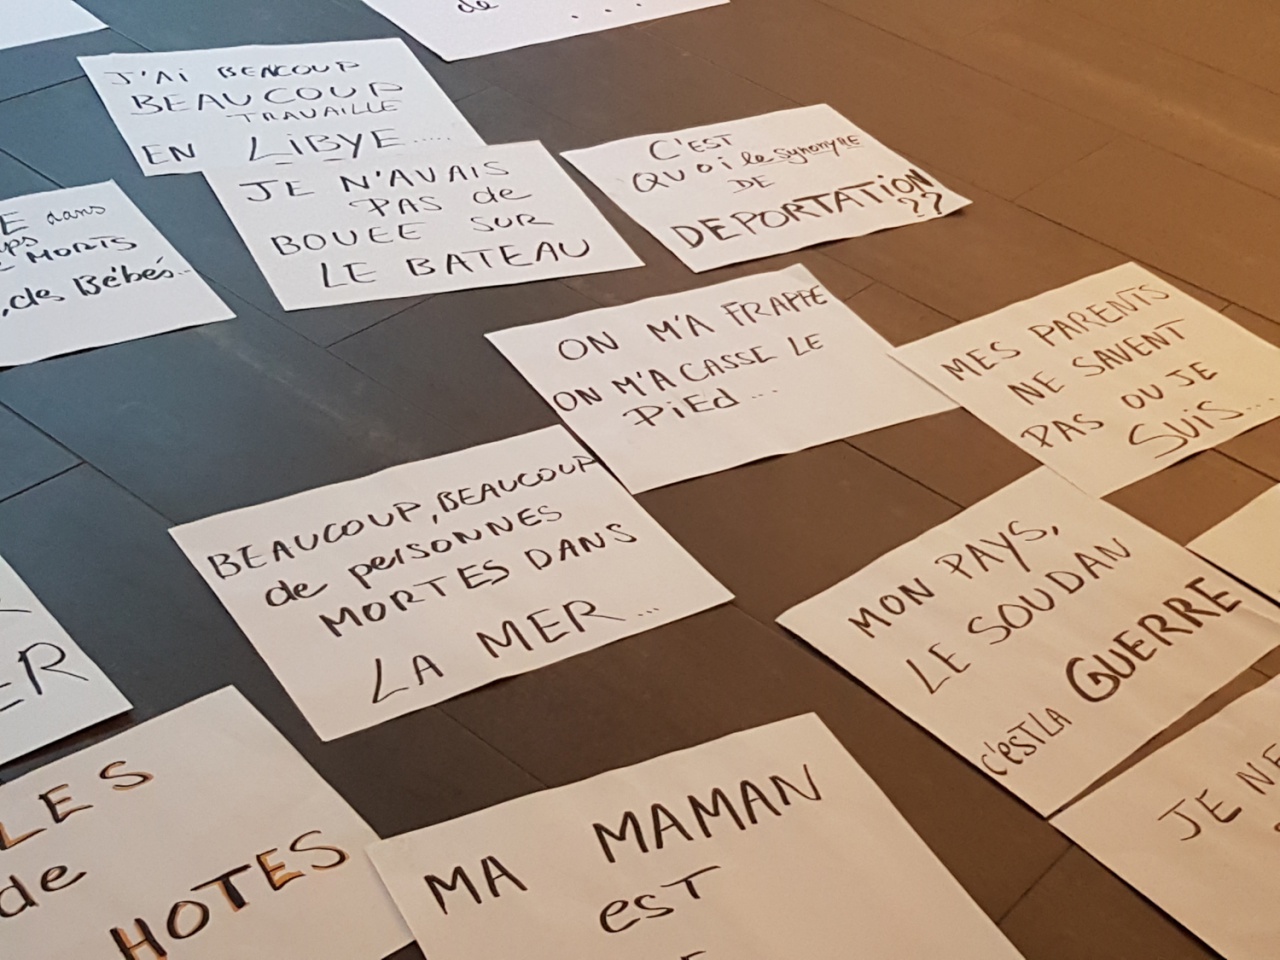 de ...
J'Ai BEACOUP
BEAUCOUP
TRAVAILLE
EN LiBYE.....
JE N'AVAIS
PAS de
BOUEE SUR
LE BATEAU
C'EST
QUOi le synonyme
DE
DEPORTATiON
??
E dans
MORTS
,des Bébés...
ON M'A FRAPPE
ON M'A CASSE LE
PiEd...
MES PARENTS
NE SAVENT
PAS OU JE
SUiS....
BEAUCOUP, BEAUCOUP
de perSONNES
MORTES DANS
LA MER...
MON PAYS,
LE SOUDAN
c'estLA GUERRE
ER
LES
de
HOTES
MA MAMAN
esT
JE NE